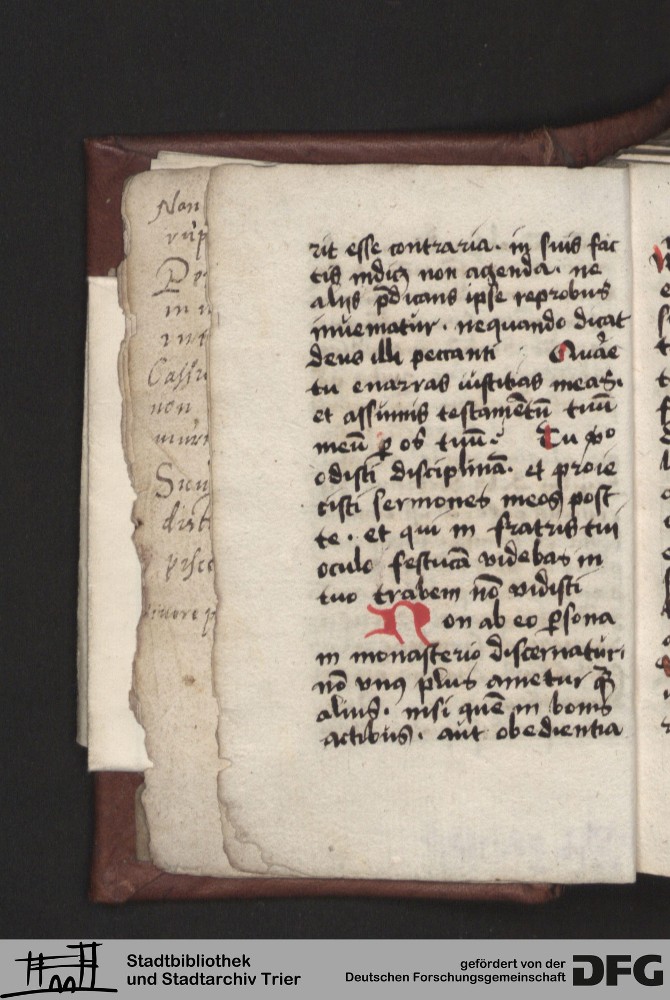 Non
rit esse contraria. in suis fac
tis indicꝫ non agenda. ne
alijs p̄dicans ipse reprobus
inueniatur. nequando dicat
deus illi peccanti Quare
tu enarras iustitias meas.
et assumis testamētū tuū
meū ꝑ os tuū. Tu ꝟo
odisti disciplinā. et proie
cisti sermones meos post
te. et qui in fratris tui
oculo festucā videbas in
tuo trabem nō vidisti
Non ab eo ꝑsona
in monasterio discernatur.
nō vnꝯ plus ametur qͣꝫ
alius. nisi quē in bonis
actibus. aut obedientia
Stadtbibliothek
und Stadtarchiv Trier
gefördert von der
Deutschen Forschungsgemeinschaft
DFG